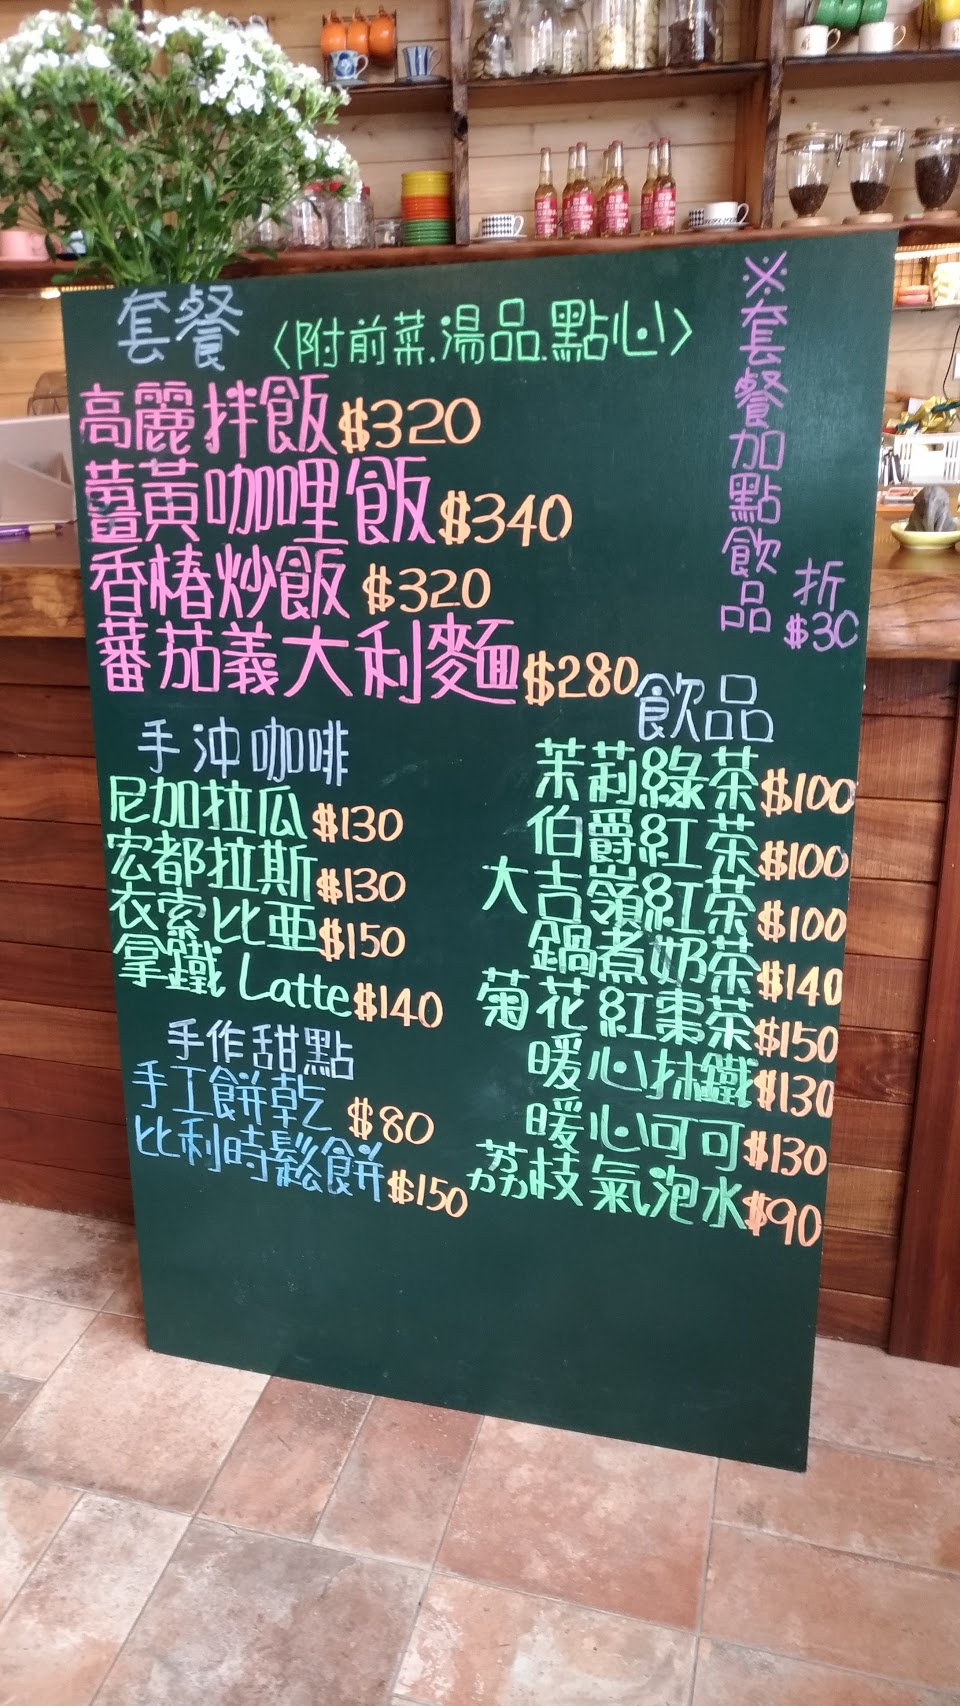 套餐〈附前菜.湯品.點心〉
高麗拌飯$320
薑黃咖哩飯$340
香椿炒飯 $320
蕃茄義大利麵$280
※套餐加點飲品
折
$30
手沖咖啡
尼加拉瓜$130
宏都拉斯$130
衣索比亞$150
拿鐵 Latte$140
手作甜點
手工餅乾 $80
比利時鬆餅$150
飲品
茉莉綠茶$100
伯爵紅茶$100
大吉嶺紅茶$100
鍋煮奶茶$140
菊花紅棗茶$150
暖心抹鐵$130
暖心可可$130
荔枝氣泡水$90